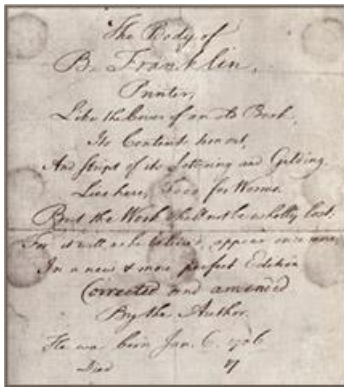 The Body of
B. Franklin,
Printer;
Like the Cover of an old Book,
Its Contents torn out,
And stript of its Lettering and Gilding,
Lies here, Food for Worms.
But the Work shall not be wholly lost:
For it will, as he believ'd, appear once more,
In a new & more perfect Edition,
Corrected and amended
By the Author.
He was born Jan. 6. 1706
Died 17